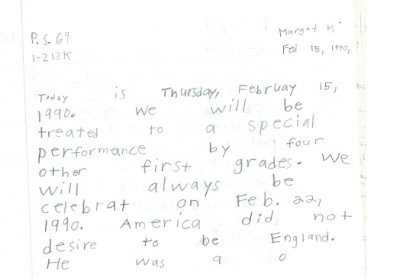 P.S. 69 Margot M.
1-213K Feb 15, 1990,
Today is Thursday, Februay 15,
1990. We will be
treated to a special
performance by four
other first grades. We
will always be
celebrat on Feb. 22,
1990. America did not
desire to be England.
He was a